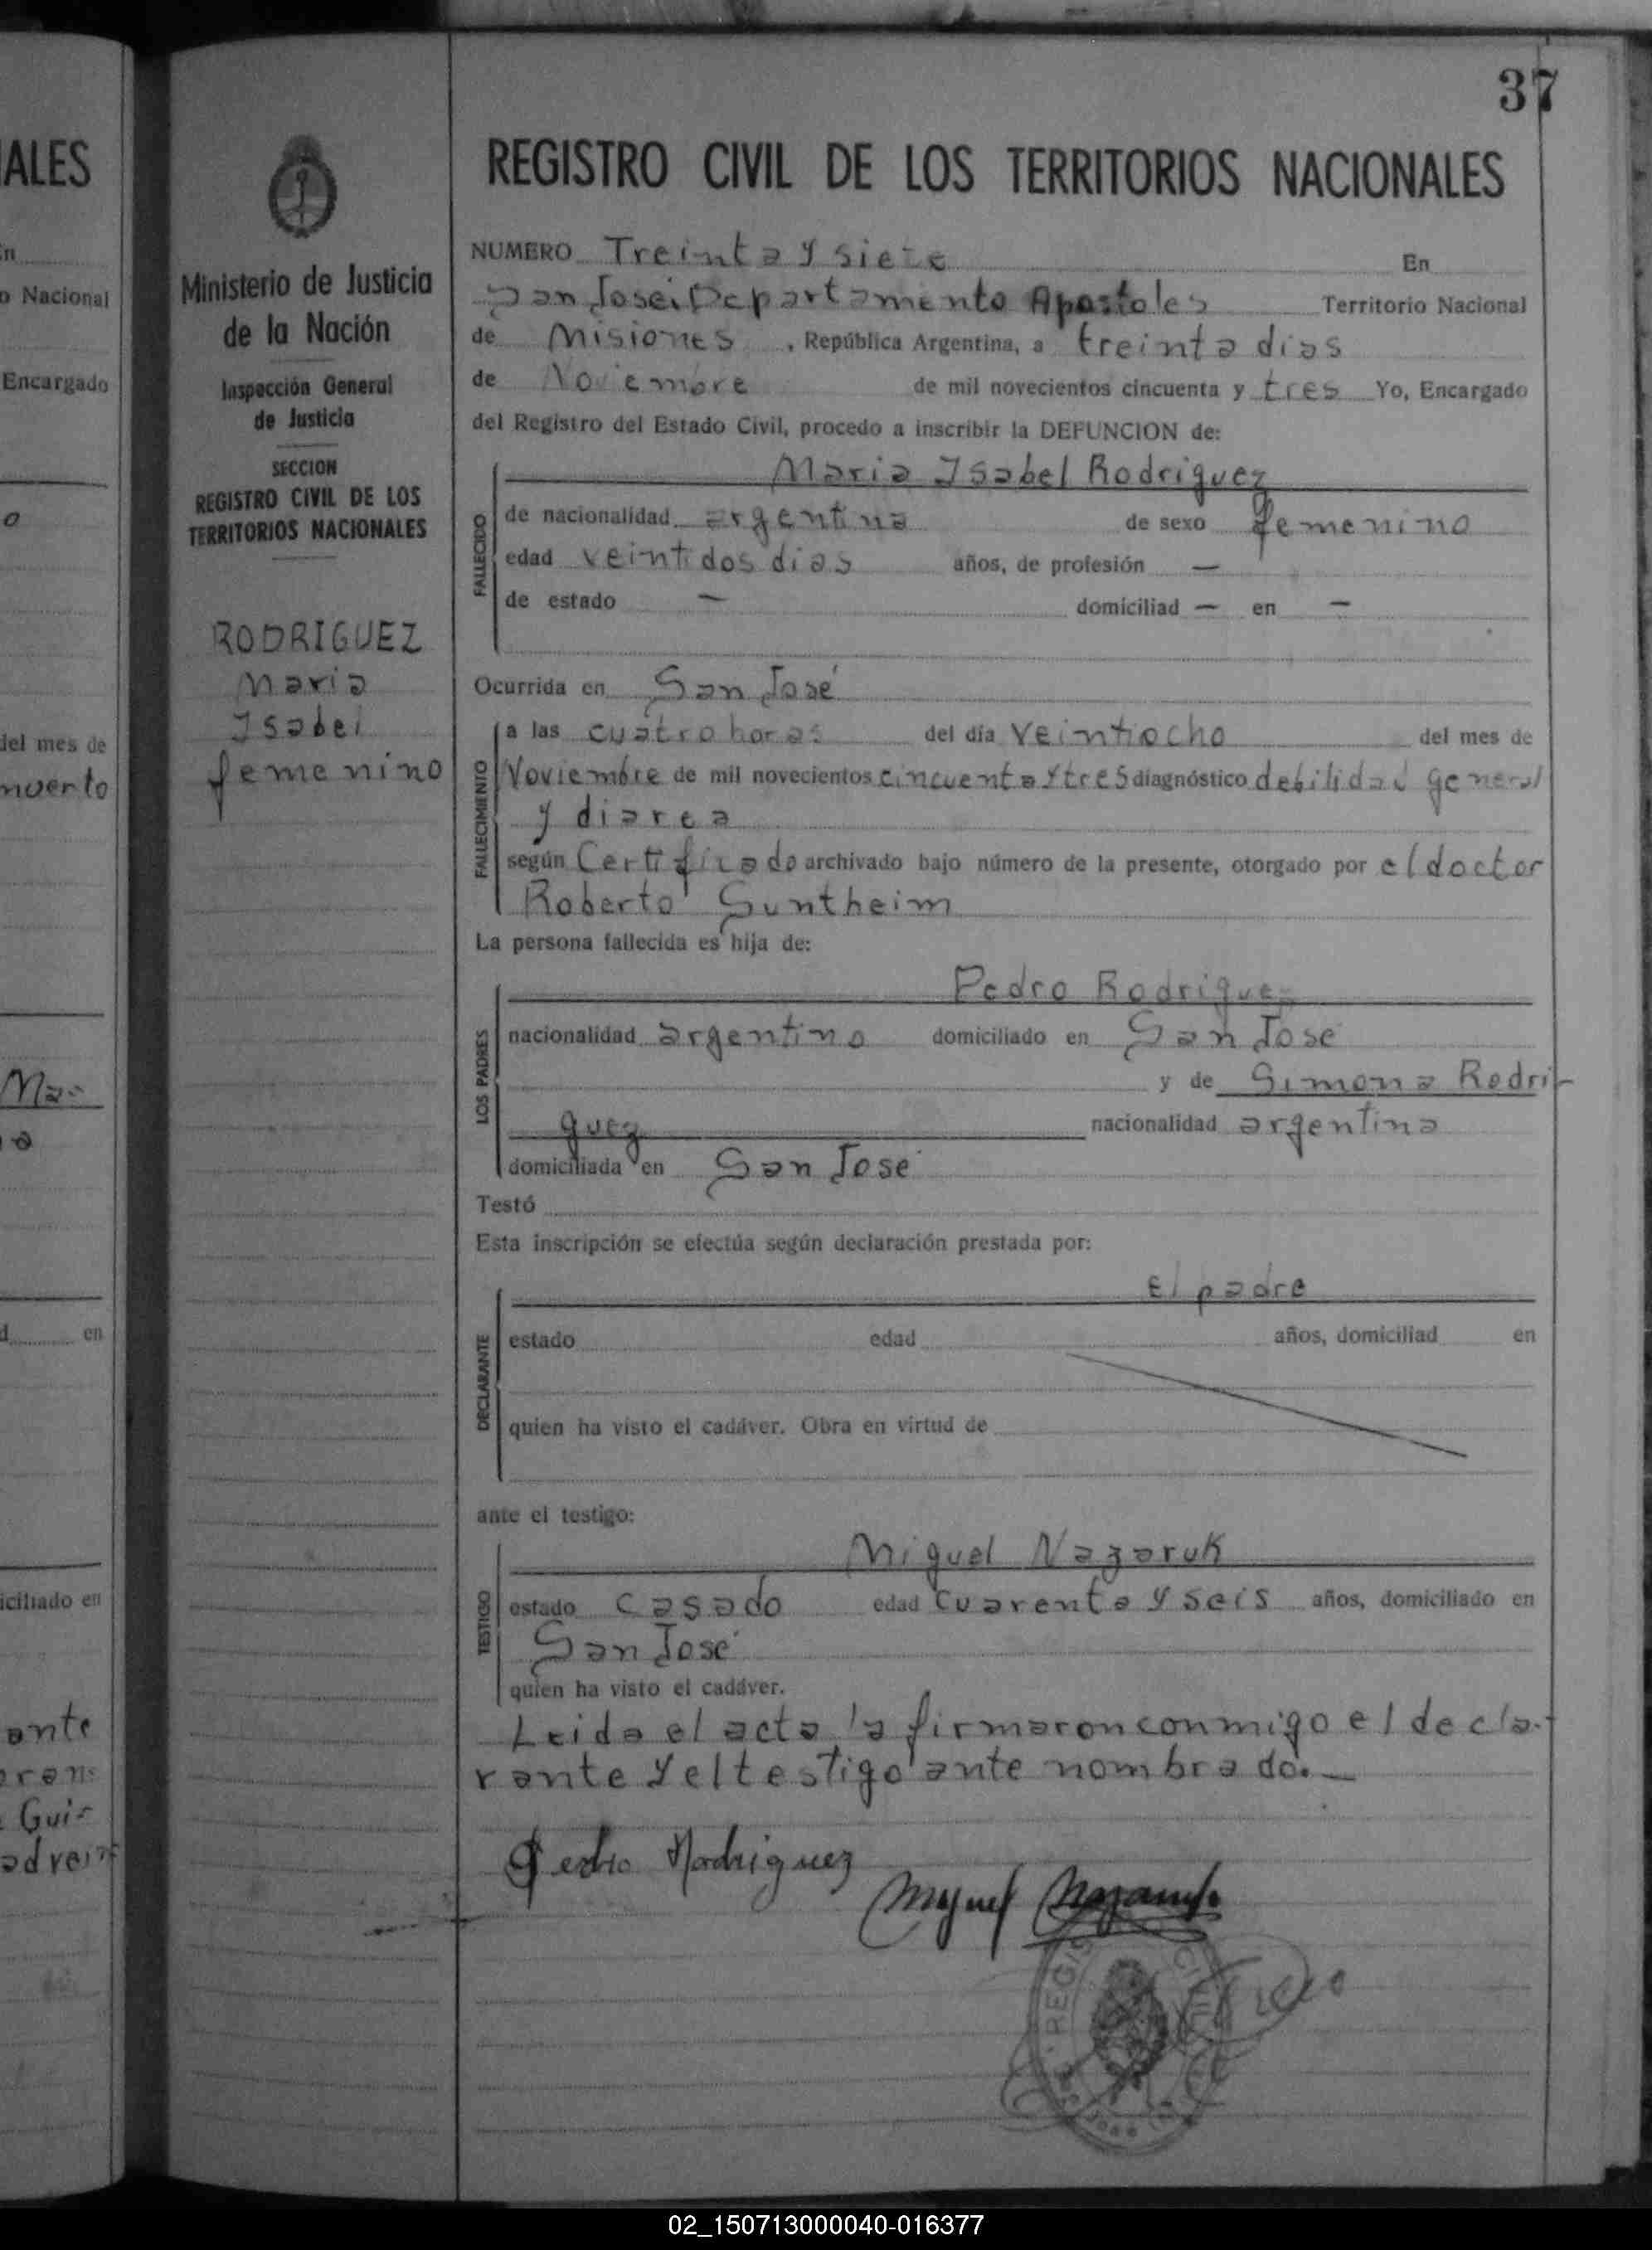 37
ALES
n
o Nacional
Encargado
o
del mes de
muerto
Ma-
a
d en
iciliado en
ante
Gui-
Ministerio de Justicia
de la Nación
Inspección General
de Justicia
SECCION
REGISTRO CIVIL DE LOS
TERRITORIOS NACIONALES
RODRIGUEZ
Maria
Isabel
femenino
REGISTRO CIVIL DE LOS TERRITORIOS NACIONALES
NUMERO Treinta y siete En
San José, Departamento Apostoles Territorio Nacional
de Misiones , República Argentina, a treinta dias
de Noviembre de mil novecientos cincuenta y tres Yo, Encargado
del Registro del Estado Civil, procedo a inscribir la DEFUNCION de:
Maria Isabel Rodriguez
FALLECIDO
de nacionalidad argentina de sexo femenino
edad veintidos dias años, de profesión —
de estado — domiciliad — en —
Ocurrida en San José
FALLECIMIENTO
a las cuatro horas del día veintiocho del mes de
Noviembre de mil novecientos cincuenta y tres diagnóstico debilidad general
y diarea
según Certificado archivado bajo número de la presente, otorgado por el doctor
Roberto Suntheim
La persona fallecida es hija de:
LOS PADRES
Pedro Rodriguez
nacionalidad argentino domiciliado en San José
y de Simona Rodri-
guez nacionalidad argentina
domiciliada en San José
Testó
Esta inscripción se efectúa según declaración prestada por:
DECLARANTE
El padre
estado edad años, domiciliad en
quien ha visto el cadáver. Obra en virtud de
ante el testigo:
TESTIGO
Miguel Nazaruk
estado casado edad cuarenta y seis años, domiciliado en
San José
quien ha visto el cadáver.
Leida el acta la firmaron conmigo el decla-
rante y el testigo ante nombrado. —
Pedro Rodriguez
Miguel Nazaruk
REGIS CIVIL
02_150713000040-016377